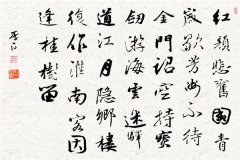 紅顏悲舊國青
歲歇芳洲不待
金門詔空持寶
劍游海雲迷驛
道江月隱鄉樓
復作淮南客因
逢桂樹留